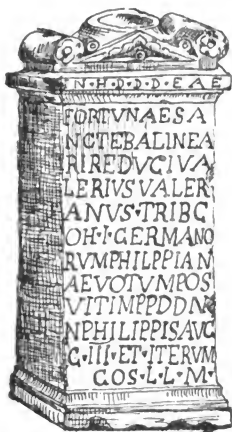 I·N·H·D·D·D·E·A·E
FORTVNAESA
NCTEBALINEA
RIREDVCIVA
LERIVSVALER
ANVS·TRIBC
OH·I·GERMANO
RVMPHILPPIAN
AEVOTVMPOS
VITIMPPDDN
NPHILIPPISAVG
G·III·ET·ITERVM
COS·L·L·M·